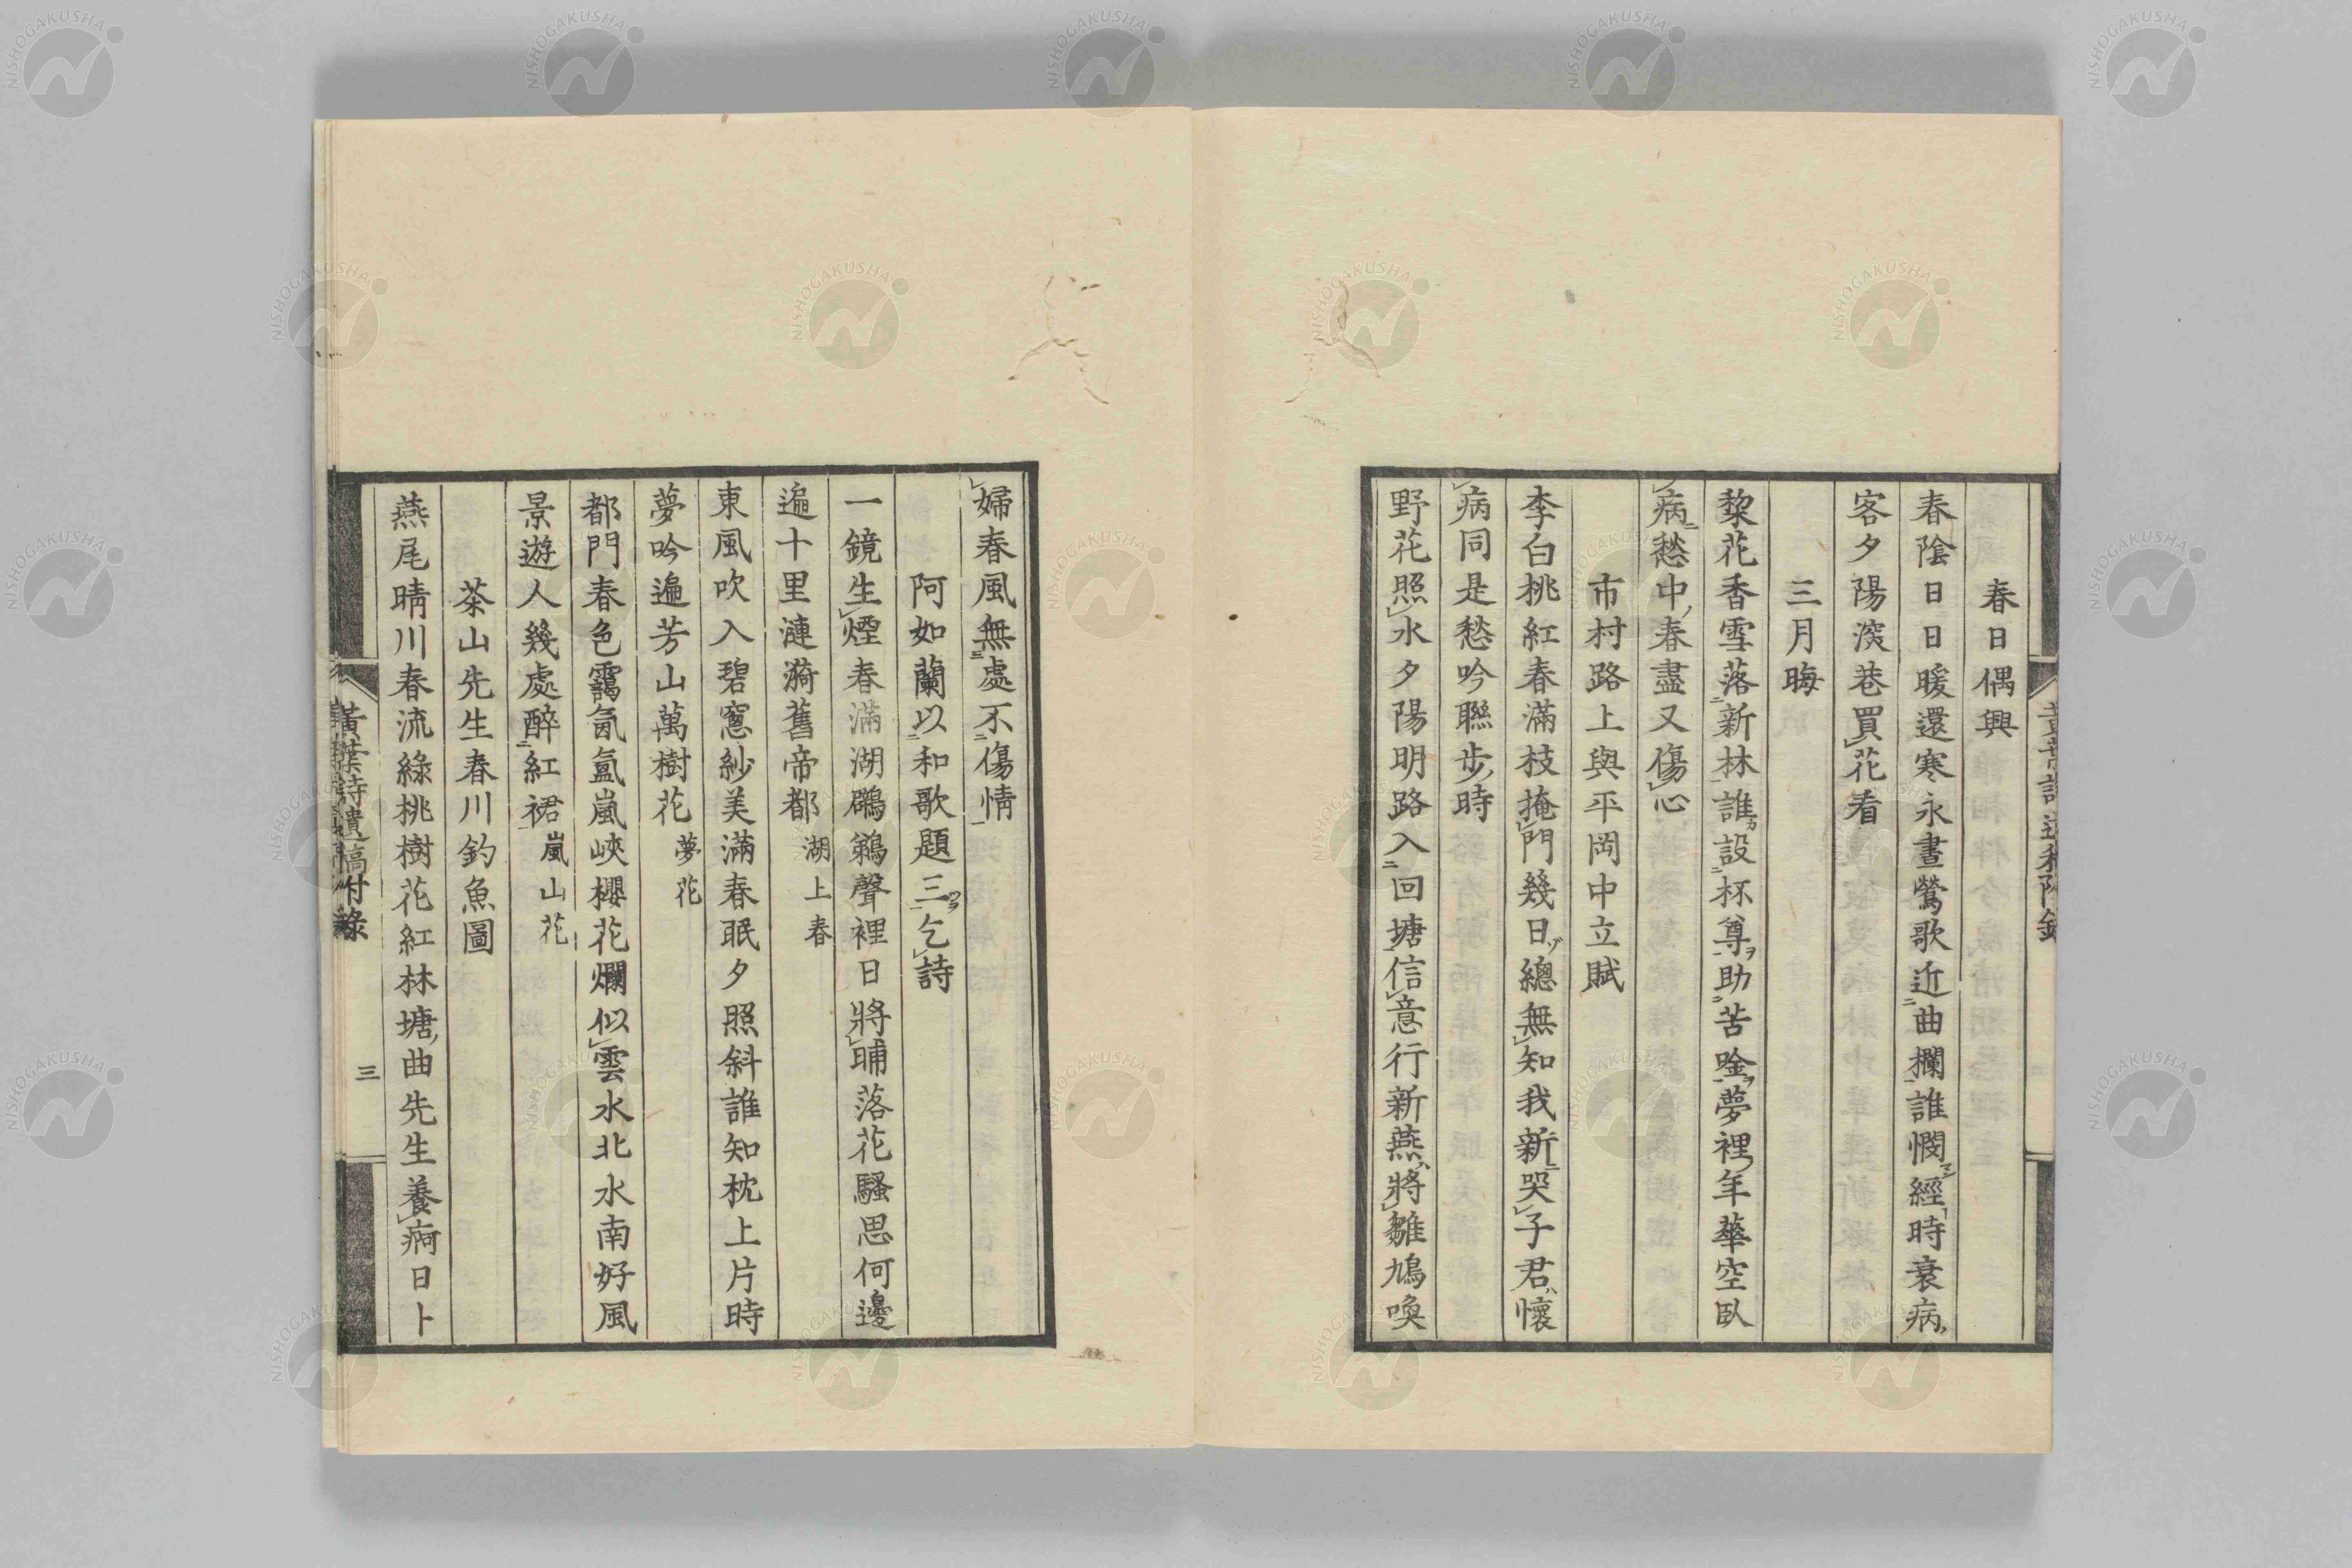 春日偶興
春陰日日暖還寒永晝鶯歌近曲欄誰憫經時衰病
客夕陽深巷買花看
三月晦
黎花香雪落新林誰設杯尊助苦唫夢裡年華空臥
病愁中春盡又傷心
市村路上與平岡中立賦
李白桃紅春滿枝掩門幾日總無知我新哭子君懷
病同是愁吟聯步時
野花照水夕陽明路入回塘信意行新燕將雛鳩喚
婦春風無處不傷情
阿如蘭以和歌題三乞詩
一鏡生煙春滿湖鸊鷉聲裡日將晡落花騷思何邊
遍十里漣漪舊帝都 湖上春
東風吹入碧窓紗美滿春眠夕照斜誰知枕上片時
夢吟遍芳山萬樹花 夢花
都門春色靄氤氳嵐峽櫻花爛似雲水北水南好風
景遊人幾處醉紅裙 嵐山花
茶山先生春川釣魚圖
燕尾晴川春流綠桃樹花紅林塘曲先生養痾日卜
黃葉詩遺稿附錄
三